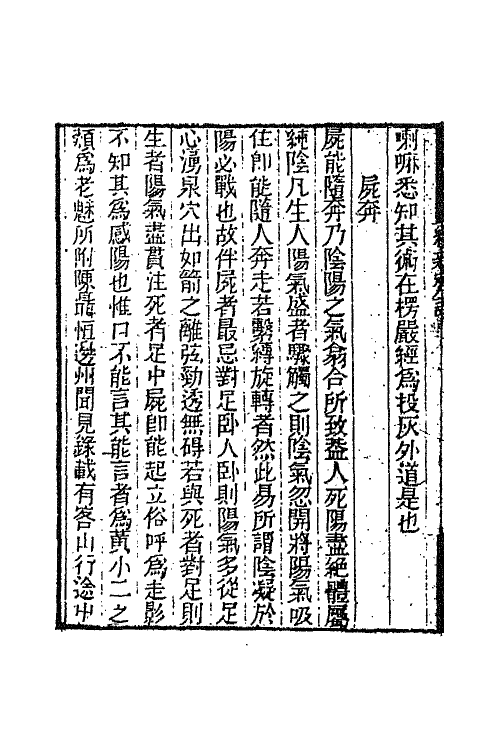 喇嘛悉知其術在楞嚴經爲投灰外道是也
屍奔
屍能隨奔乃陰陽之氣翕合所致蓋人死陽盡絕體屬
純陰凡生人陽氣盛者驟觸之則陰氣忽開將陽氣吸
住卽能隨人奔走若繫縛旋轉者然此易所謂陰凝於
陽必戰也故伴屍者最忌對足卧人卧則陽氣多從足
心湧泉穴出如箭之離弦勁透無碍若與死者對足則
生者陽氣盡貫注死者足中屍卽能起立俗呼爲走影
不知其爲感陽也惟口不能言其能言者爲黃小二之
類爲老魅所附陳鼎恒邊州聞見錄載有客山行途中